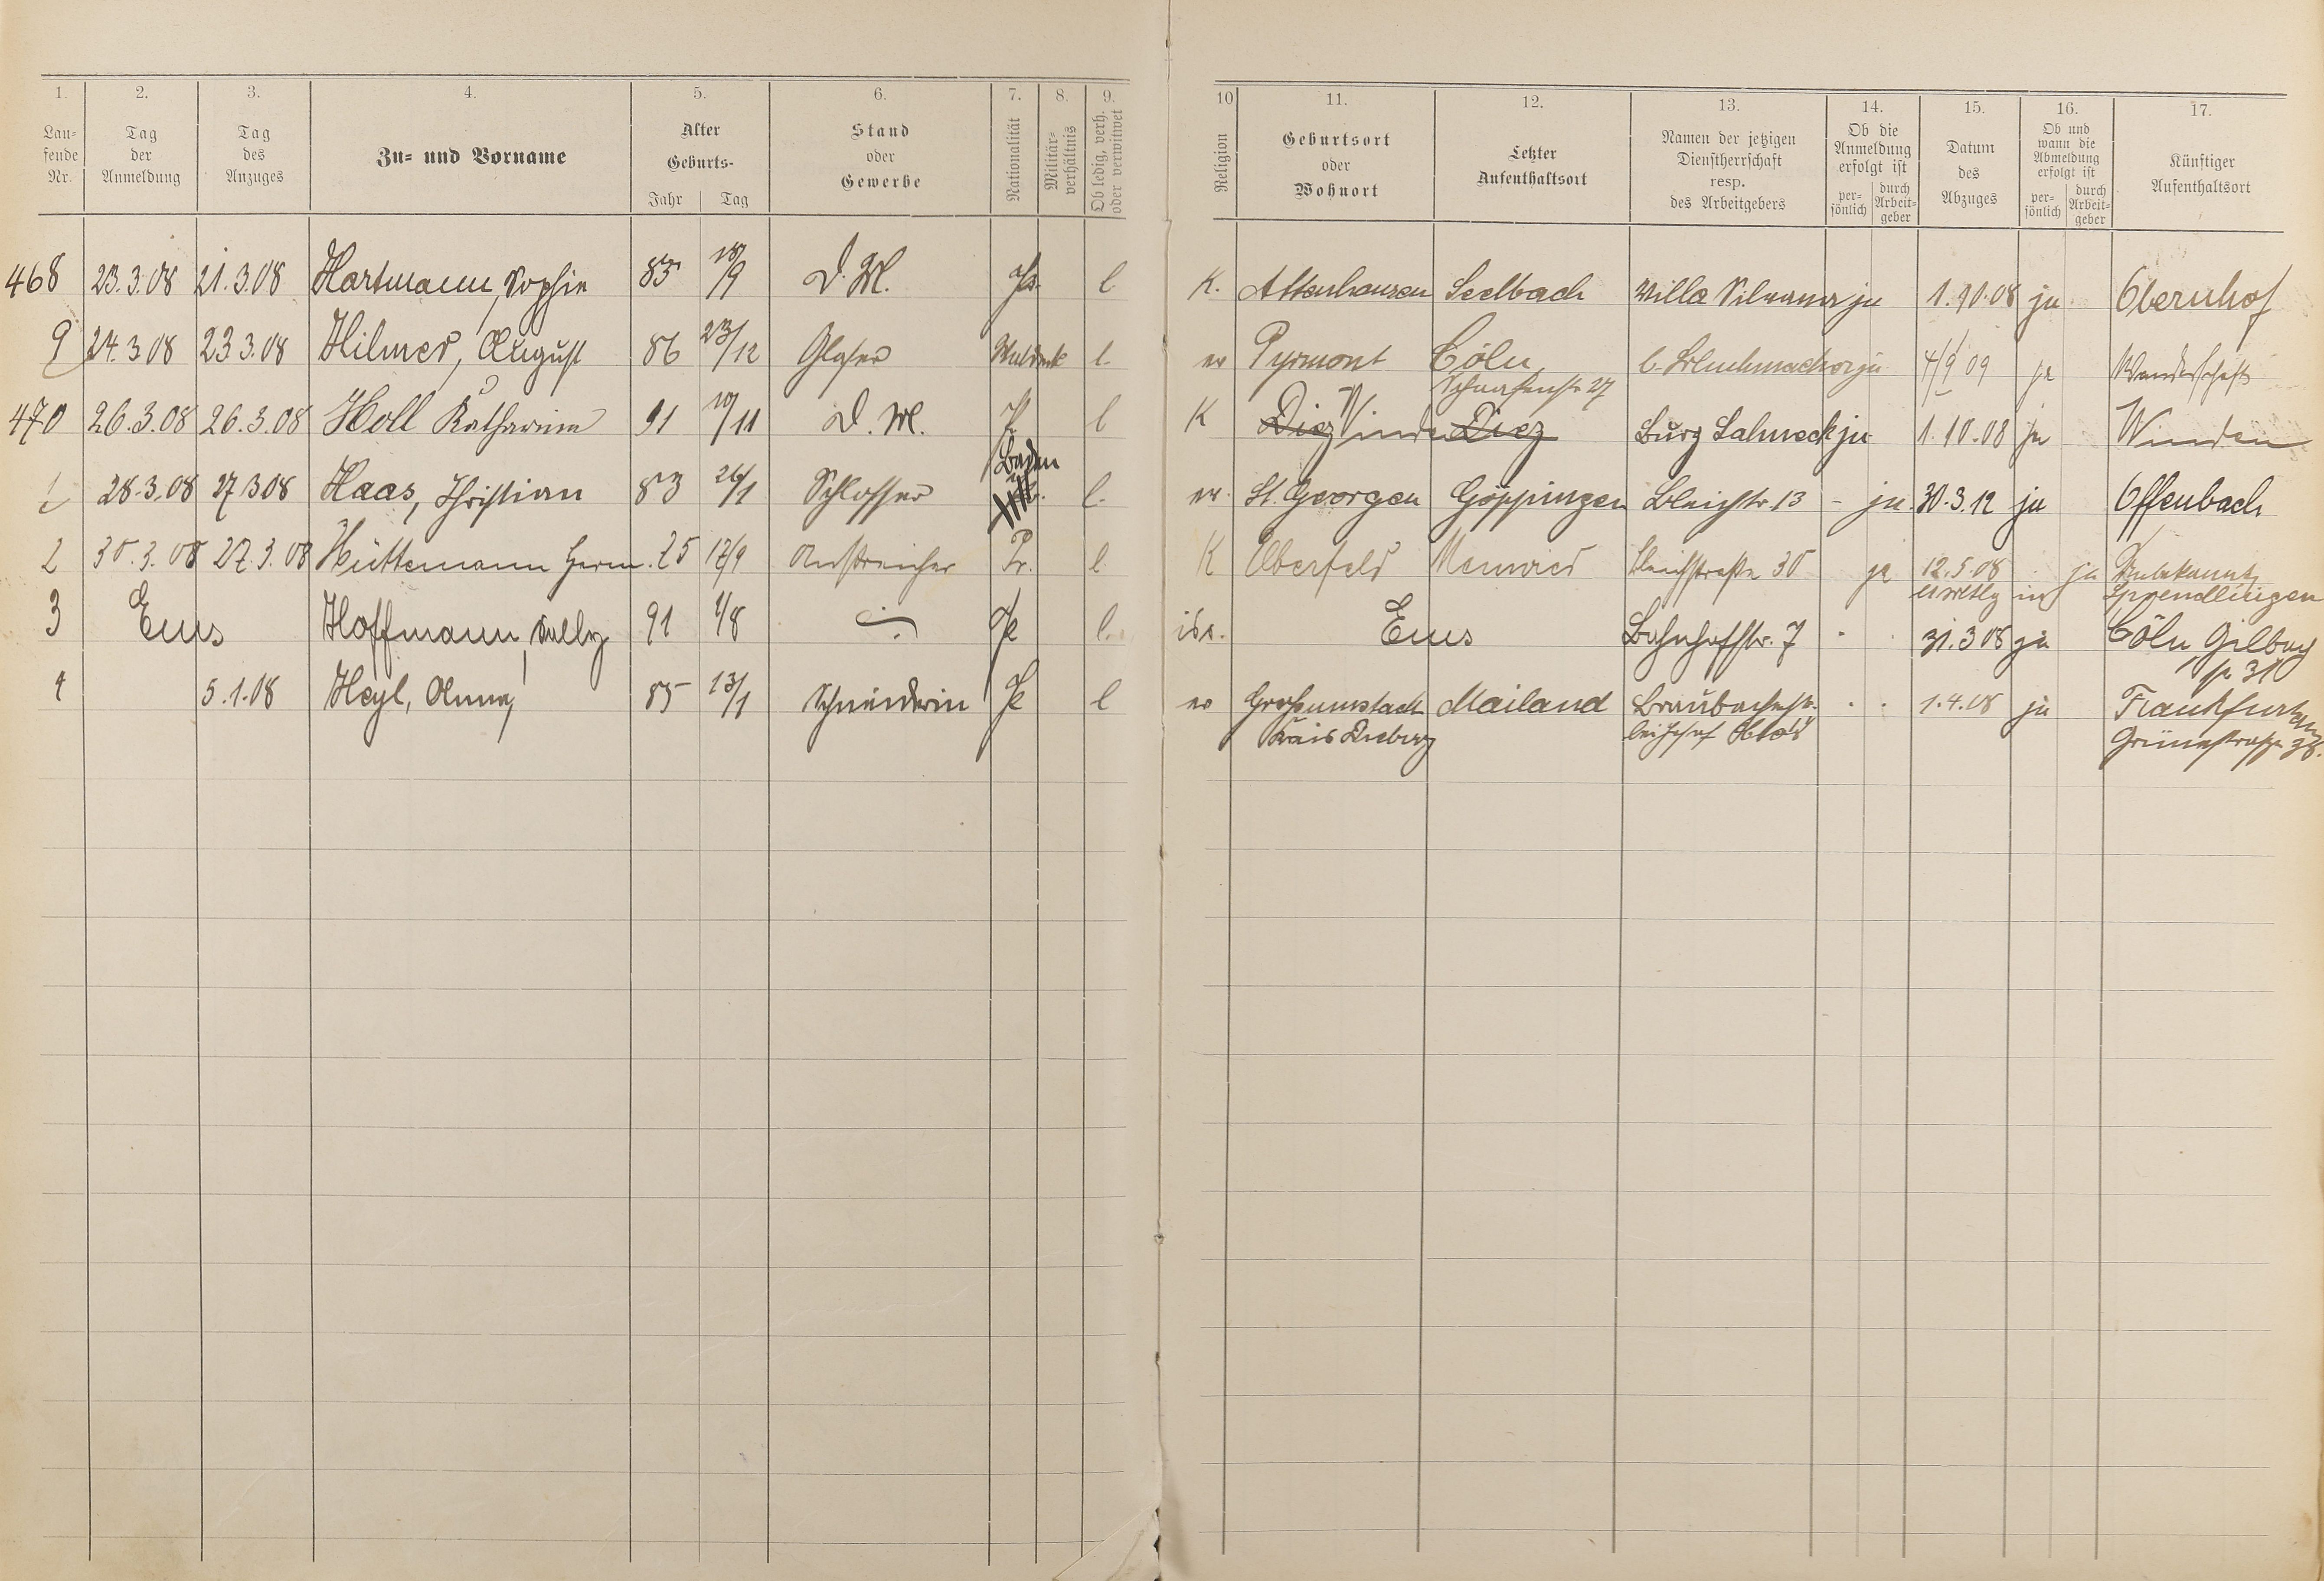 1. 2. 3. 4. 5. 6. 7. 8. 9. 10 11. 12. 13. 14. 15. 16. 17.
Lau-
fende
Nr.
Tag
der
Anmeldung
Tag
des
Anzuges
Zu- und Vorname
Alter
Geburts-
Jahr Tag
Stand
oder
Gewerbe
Nationalität
Militär-
verhältnis
Ob ledig, verh.
oder verwitwet
Religion
Geburtsort
oder
Wohnort
Letzter
Aufenthaltsort
Namen der jetzigen
Dienstherrschaft
resp.
des Arbeitgebers
Ob die
Anmeldung
erfolgt ist
per-
sönlich
durch
Arbeit-
geber
Datum
des
Abzuges
Ob und
wann die
Abmeldung
erfolgt ist
per-
sönlich
durch
Arbeit-
geber
Künftiger
Aufenthaltsort
468 23.3.08 21.3.08 Hartmann, Sophie 85 18/9 D. M. l K. Attenhausen Seelbach Villa ja 1.10.08 ja Obernhof
9 24.3 08 23 3.08 Hilmer, August 86 23/12 Glaser Waldeck l. ev Pyrmont Cöln ja 4/9 09 ja Wanderschaft
27
470 26.3.08 26.3.08 Holl Katharina 91 10/11 D. M. l K Diez Winden Diez Burg Lahneck ja 1.10.08 ja Winden
Baden
1 28.3.08 27 3 08 Haas, Christian 83 26/1 Schlosser l. ev. St. Georgen Göppingen Bleichstr. 13 - ja. 30.3.12 ja Offenbach
2 30.3.08 27.3.08 Hüttemann Herm. 25 17/9 Anstreicher Pr. l K Elberfeld Neuwied Bleichstraße 30 ja 12.5.08 ja Unbekannt
in Sprendlingen
3 Ems Hoffmann, Sally 91 1/8 l. isr. Ems Bahnhofstr. 7 31.3 08 ja Cöln, Gilbach
str 31
4 5.1.08 Heyl, Anna 85 13/1 Schneiderin l ev Großumstadt Mailand Braubacherstr. 1.4.08 ja Frankfurt a/M
Kreis Dieburg bei Josef Grünestraße 38.